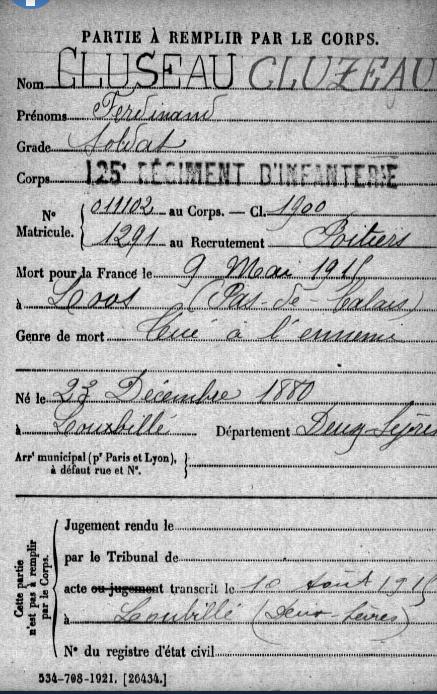 PARTIE À REMPLIR PAR LE CORPS.
Nom CLUSEAU CLUZEAU
Prénoms Ferdinand
Grade Soldat
Corps 125e RÉGIMENT D'INFANTERIE
No 011102 au Corps. — Cl. 1900
Matricule. 1291 au Recrutement Poitiers
Mort pour la France le 9 Mai 1915
à Loos (Pas-de-Calais)
Genre de mort Tué à l'ennemi
Né le 23 Décembre 1880
à Loubillé Département Deux-Sèvres
Arrt municipal (pr Paris et Lyon),
à défaut rue et No.
Cette partie
n'est pas à remplir
par le Corps.
Jugement rendu le
par le Tribunal de
acte ou jugement transcrit le 10 Août 1915
à Loubillé (Deux-Sèvres)
No du registre d'état civil
534-708-1921. [26434.]